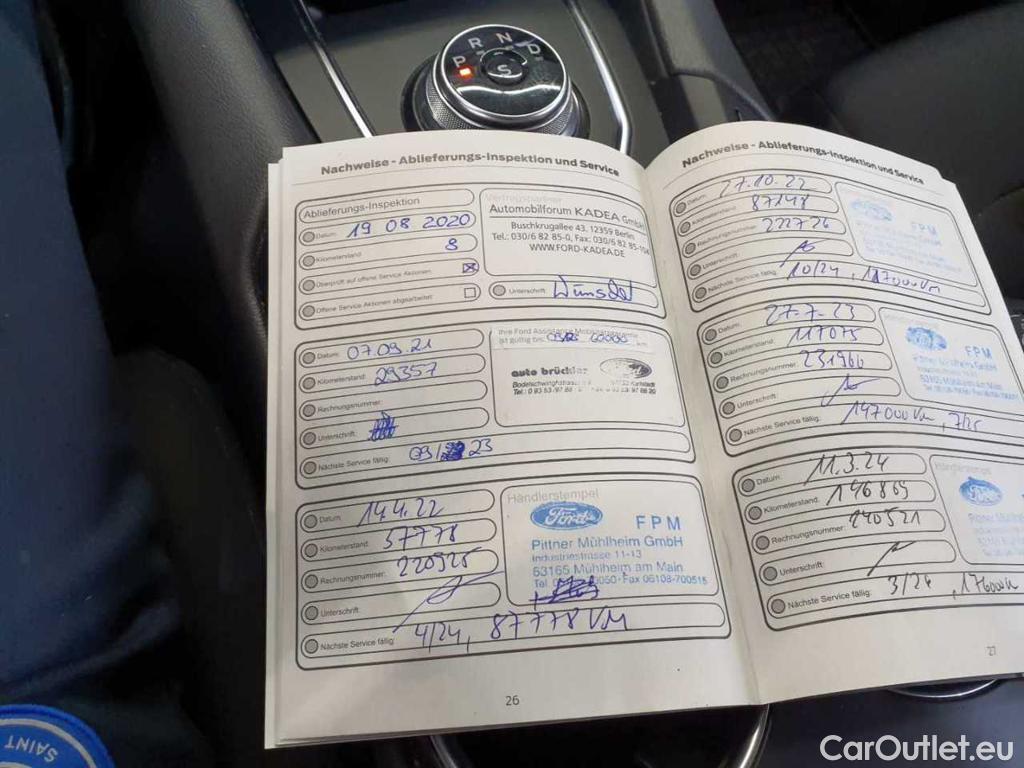 R N D
P S
Nachweise - Ablieferungs-Inspektion und Service
Ablieferungs-Inspektion
Datum: 19 08 2020
Kilometerstand 8
Überprüft auf offene Service Aktionen:
Offene Service Aktionen abgearbeitet:
Vertragspartner
Automobilforum KADEA GmbH
Buschkrugallee 43, 12359 Berlin
Tel.: 030/6 82 85-0, Fax: 030/6 82 85-104
WWW.FORD-KADEA.DE
Unterschrift:
Datum: 07.09.21
Kilometerstand: 29357
Rechnungsnummer:
Unterschrift:
Nächste Service fällig: 09/ 23
Ihre Ford Assistance Mobilitätsgarantie
ist gültig bis: 60000 km
auto brückler
Datum: 14.4.22
Kilometerstand: 57778
Rechnungsnummer: 220525
Unterschrift:
Nächste Service fällig: 4/24, 87778 KM
Händlerstempel
Ford FPM
Pittner Mühlheim GmbH
Industriestrasse 11-13
63165 Mühlheim am Main
Fax 06108-700515
26
Nachweise - Ablieferungs-Inspektion und Service
Datum: 27.10.22
Kilometerstand: 87148
Rechnungsnummer: 222726
Unterschrift:
Nächste Service fällig: 10/24, 117000 KM
FPM
Datum: 27.7.23
Kilometerstand: 117075
Rechnungsnummer: 231966
Unterschrift:
Nächste Service fällig: 147000 KM, 7/25
FPM
Datum: 11.3.24
Kilometerstand: 146869
Rechnungsnummer: 240521
Unterschrift:
Nächste Service fällig: 3/24
Händlerstempel
Ford
27
SAINT
CarOutlet.eu